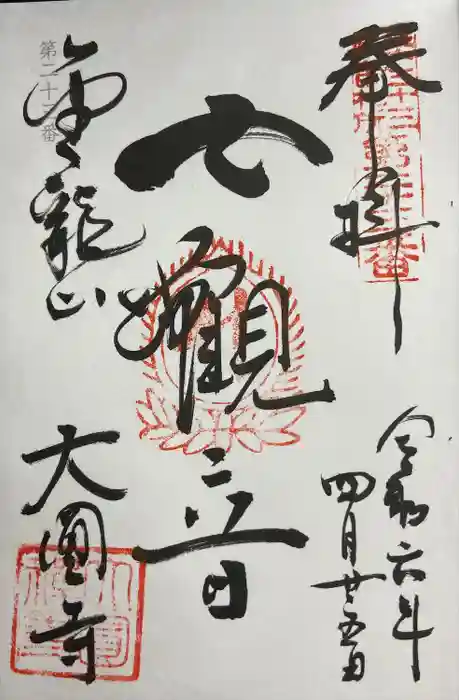 奉拝
令和六年
四月廿五日
七観音
金龍山
大圓寺
第二十三番